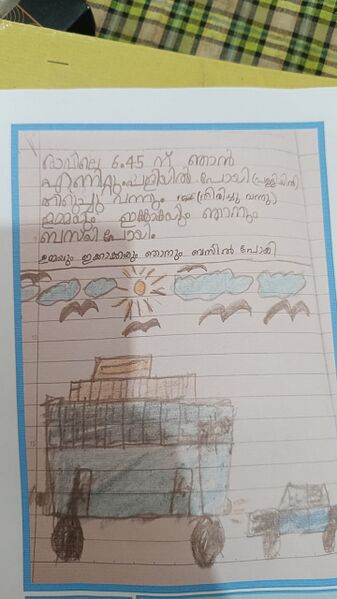 രാവിലെ 6.45 ന് ഞാൻ
എണിറ്റും പളിയിൽ പോയി (പള്ളിയിൽ)
തിരുച്ചു വന്നും (തിരിച്ചു വന്നു)
ഉമ്മയും ഇക്കാക്കയും ഞാനും
ബസിൽ പോയി
ഉമ്മയും ഇക്കാക്കയും ഞാനും ബസിൽ പോയി